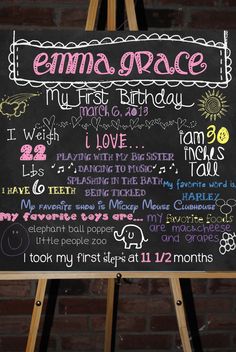 emma grace
My First Birthday
March 6, 2013
I Weigh
22
Lbs
i LOVE...
PLAYING WITH MY BIG SISTER
DANCING TO MUSIC
SPLASHING IN THE BATH
BEING TICKLED
i am 30
inches
Tall
I HAVE 6 TEETH
My favorite word is
HARLEY
My favorite show is Mickey Mouse Clubhouse
my favorite toys are...
elephant ball popper
little people zoo
my favorite foods
are mac&cheese
and grapes
I took my first steps at 11 1/2 months